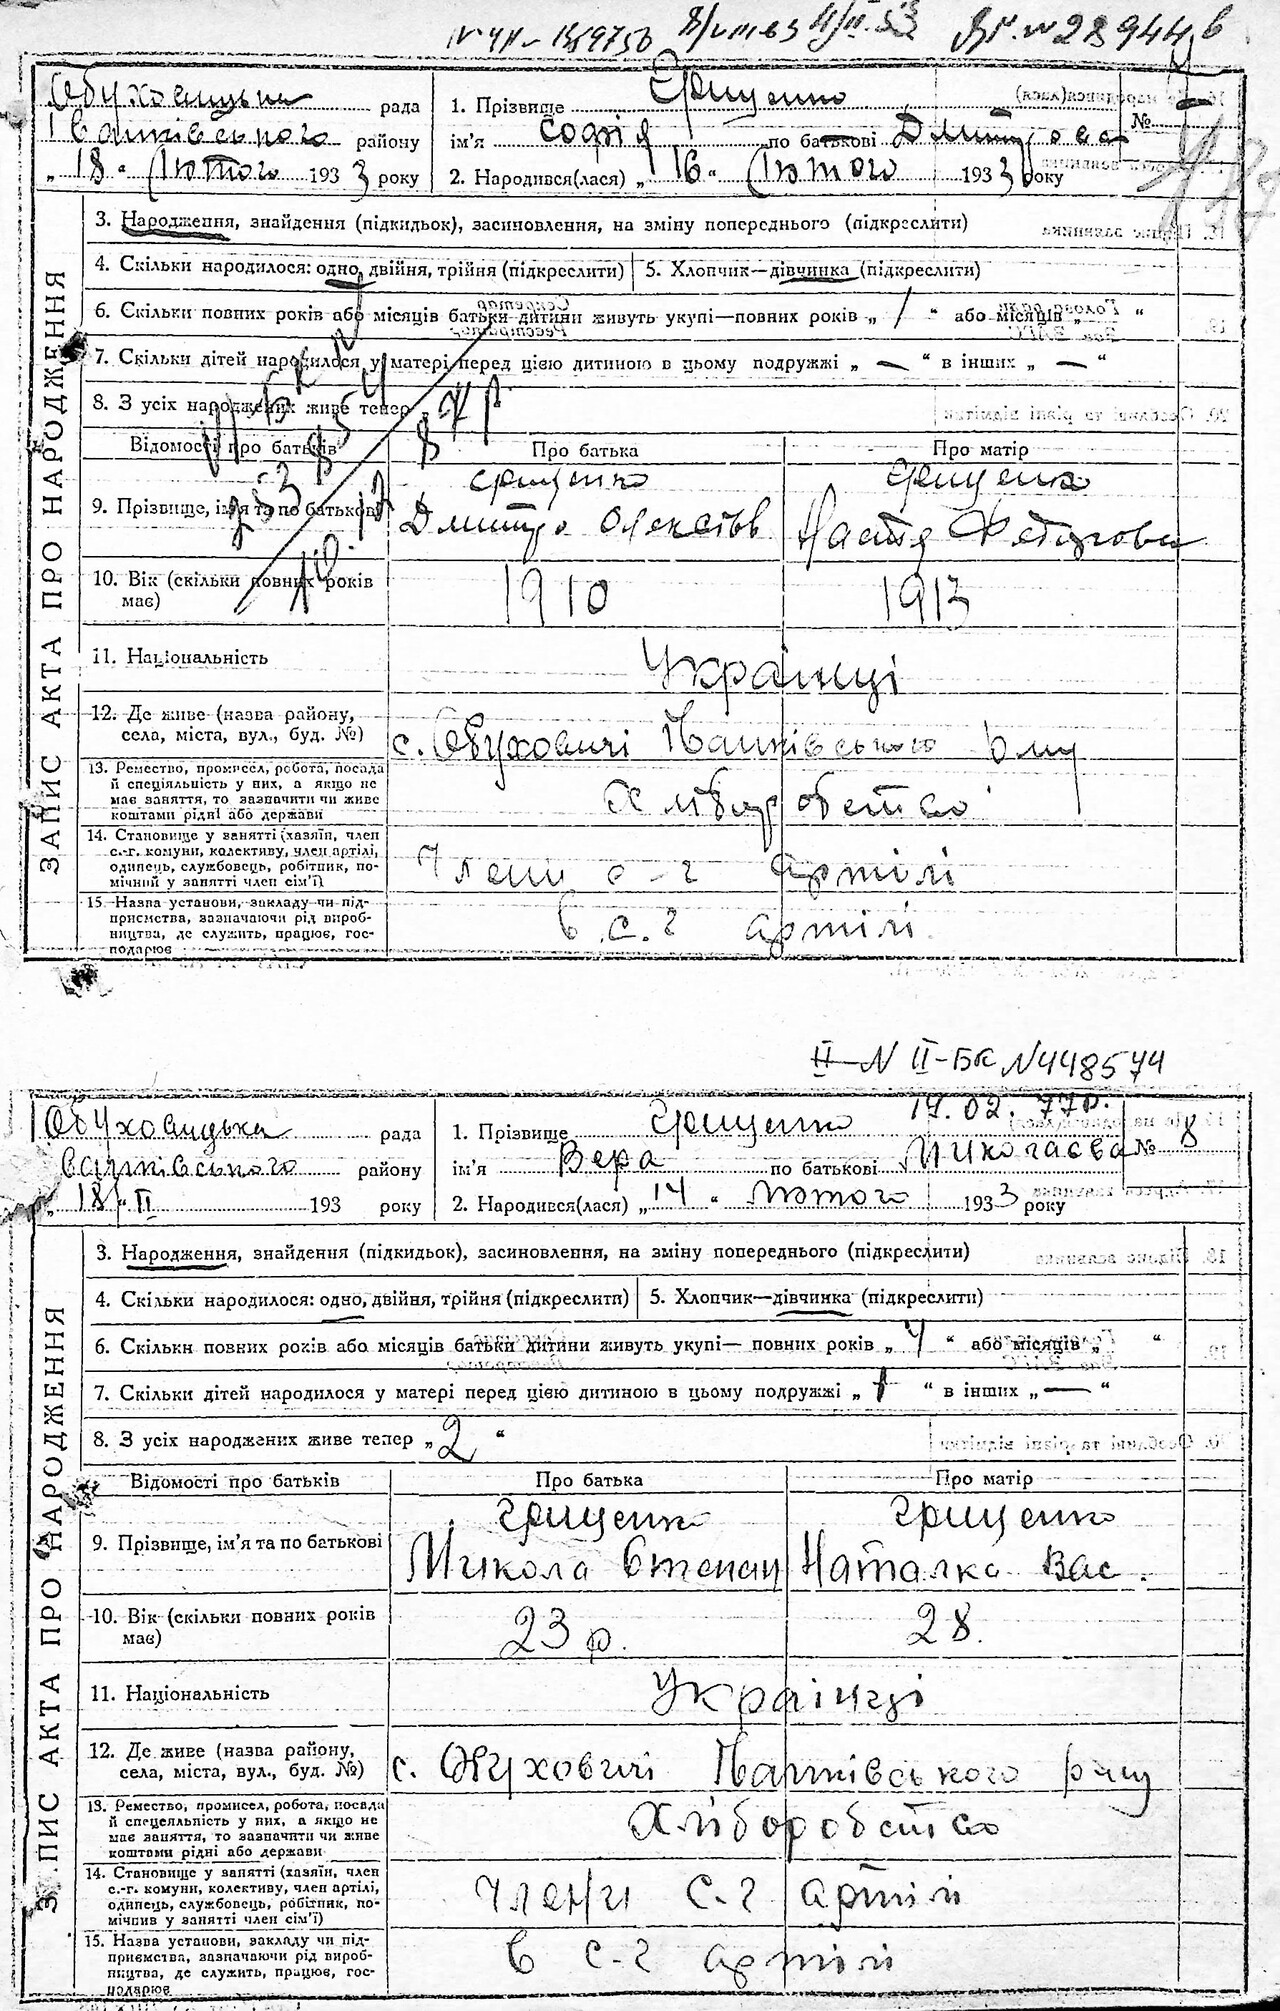 Обуховицька рада
Іванківського району
„ 18 “ Лютого 1933 року
1. Прізвище Грищенко
ім'я Софія по батькові Дмитрова
2. Народився(лася) „ 16 “ Лютого 1933 року
№
3. Народження, знайдення (підкидьок), засиновлення, на зміну попереднього (підкреслити)
4. Скільки народилося: одно, двійня, трійня (підкреслити) 5. Хлопчик—дівчинка (підкреслити)
6. Скільки повних років або місяців батьки дитини живуть укупі—повних років „ 1 “ або місяців „ “
7. Скільки дітей народилося у матері перед цією дитиною в цьому подружжі „ — “ в інших „ — “
8. З усіх народжених живе тепер „
Відомості про батьків Про батька Про матір
9. Прізвище, ім'я та по батькові
Грищенко Грищенко
Дмитро Олексіїв Настя Федорова
10. Вік (скільки повних років має) 1910 1913
11. Національність Українці
12. Де живе (назва району,
села, міста, вул., буд. №) с. Обуховичі Іванківського р-ну
13. Ремество, промисел, робота, посада
й спеціяльність у них, а якщо не
має заняття, то зазначити чи живе
коштами рідні або держави
Хліборобство
14. Становище у занятті (хазяїн, член
с.-г. комуни, колективу, член артілі,
одинець, службовець, робітник, по-
мічний у занятті член сім'ї)
Члени с-г артілі
15. Назва установи, закладу чи під-
приємства, зазначаючи рід вироб-
ництва, де служить, працює, гос-
подарює
в с.г артілі
ЗАПИС АКТА ПРО НАРОДЖЕННЯ
II-БК N448574
14.02.77р.
Обуховицька рада
Іванківського району
„ 18 “ II 193 року
1. Прізвище Грищенко
ім'я Вера по батькові Миколаєва
2. Народився(лася) „ 14 “ лютого 1933 року
№ 8
3. Народження, знайдення (підкидьок), засиновлення, на зміну попереднього (підкреслити)
4. Скільки народилося: одно, двійня, трійня (підкреслити) 5. Хлопчик—дівчинка (підкреслити)
6. Скільки повних років або місяців батьки дитини живуть укупі— повних років „ 4 “ або місяців „ “
7. Скільки дітей народилося у матері перед цією дитиною в цьому подружжі „ 1 “ в інших „ — “
8. З усіх народжених живе тепер „ 2 “
Відомості про батьків Про батька Про матір
9. Прізвище, ім'я та по батькові
Грищенко Грищенко
Микола Степан Наталка Вас.
10. Вік (скільки повних років має) 23 р. 28.
11. Національність Українці
12. Де живе (назва району,
села, міста, вул., буд. №) с. Обуховичі Іванківського р-ну
13. Ремество, промисел, робота, посада
й спецеяльність у них, а якщо не
має заняття, то зазначити чи живе
коштами рідні або держави
Хліборобство
14. Становище у занятті (хазяїн, член
с.-г. комуни, колективу, член артілі,
одинець, службовець, робітник, по-
мічнив у занятті член сім'ї)
Члени с-г артілі
15. Назва установи, закладу чи під-
приємства, зазначаючи рід вироб-
ництва, де служить, працює, гос-
подарює
в с-г артілі
ЗАПИС АКТА ПРО НАРОДЖЕННЯ